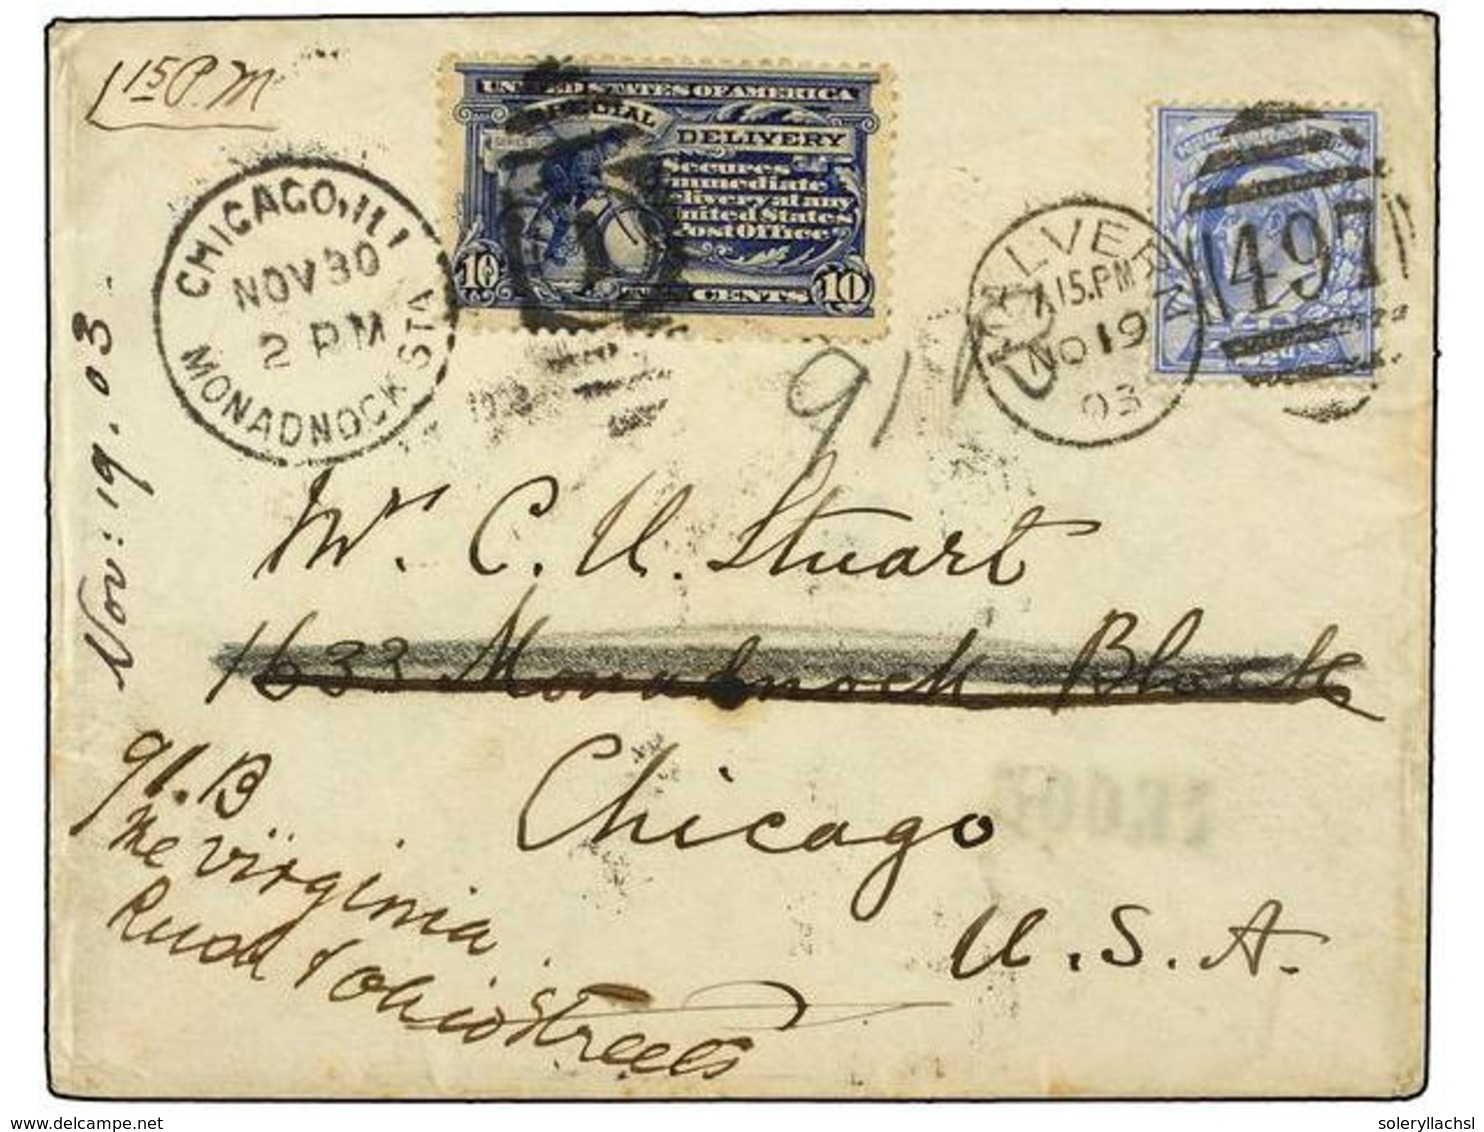 115 P.M
UNITED STATES OF AMERICA
SPECIAL
DELIVERY
Secures
immediate
delivery at any
United States
Post Office
10
TEN CENTS
10
CHICAGO, ILL
NOV 30
2 PM
MONADNOCK STA
1
MALVERN
7.15.PM
NO 19
03
497
91 B
Nov: 19. 03.
Mr. C. U. Stuart
1633 Monadnock Block
Chicago
U. S. A.
91. B
The Virginia
Rush & Ohio Streets
delcampe.net
soleryllachsl